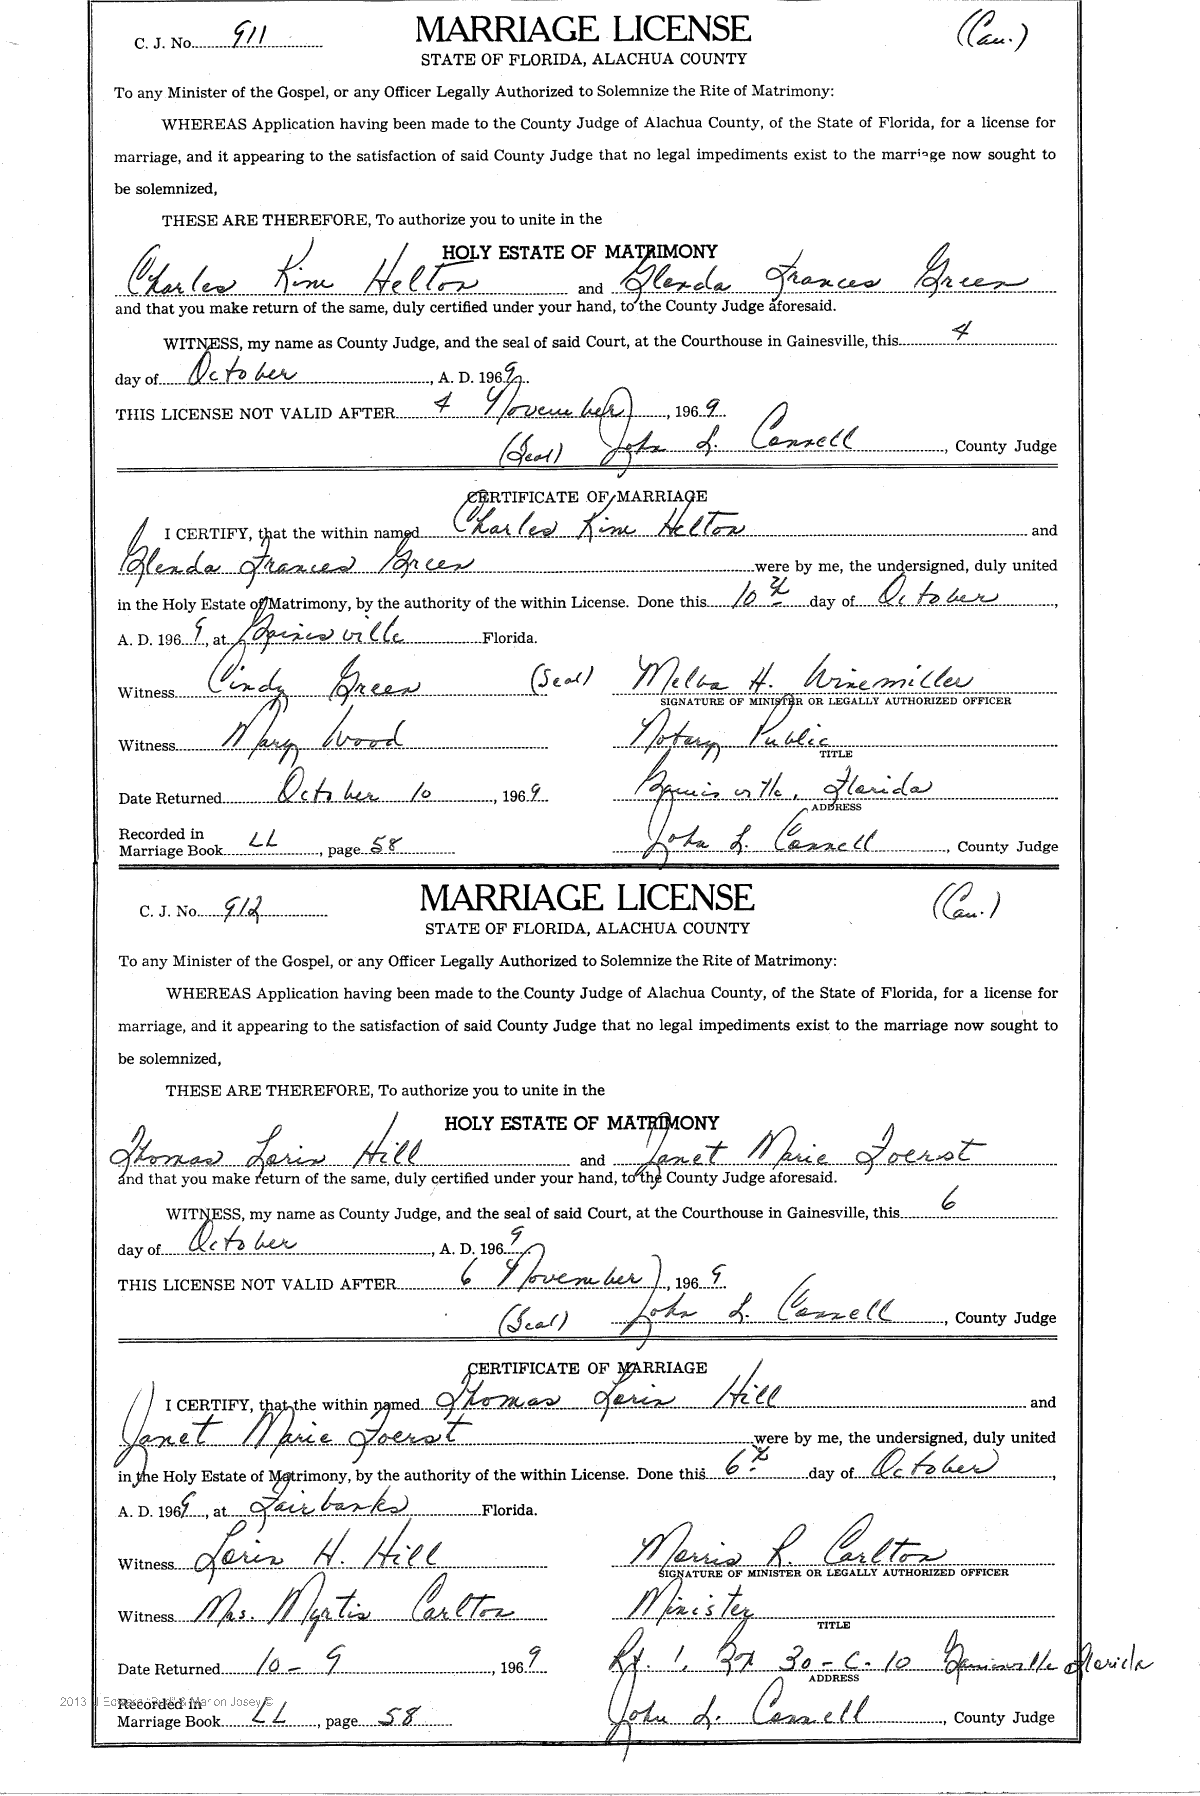 C. J. No. 911 MARRIAGE LICENSE (Cau.)
STATE OF FLORIDA, ALACHUA COUNTY
To any Minister of the Gospel, or any Officer Legally Authorized to Solemnize the Rite of Matrimony:
WHEREAS Application having been made to the County Judge of Alachua County, of the State of Florida, for a license for
marriage, and it appearing to the satisfaction of said County Judge that no legal impediments exist to the marriage now sought to
be solemnized,
THESE ARE THEREFORE, To authorize you to unite in the
HOLY ESTATE OF MATRIMONY
Charles Kim Helton and Glenda Frances Green
and that you make return of the same, duly certified under your hand, to the County Judge aforesaid.
WITNESS, my name as County Judge, and the seal of said Court, at the Courthouse in Gainesville, this 4
day of October, A. D. 1969.
THIS LICENSE NOT VALID AFTER 4 November, 1969
(Seal) John L. Connell, County Judge
CERTIFICATE OF MARRIAGE
I CERTIFY, that the within named Charles Kim Helton and
Glenda Frances Green were by me, the undersigned, duly united
in the Holy Estate of Matrimony, by the authority of the within License. Done this 10th day of October,
A. D. 1969, at Gainesville Florida.
Witness Cindy Green (Seal) Melba H. Winemiller
SIGNATURE OF MINISTER OR LEGALLY AUTHORIZED OFFICER
Witness Mary Wood Notary Public
TITLE
Date Returned October 10, 1969 Gainesville, Florida
ADDRESS
Recorded in
Marriage Book LL, page 58 John L. Connell, County Judge
C. J. No. 912 MARRIAGE LICENSE (Cau.)
STATE OF FLORIDA, ALACHUA COUNTY
To any Minister of the Gospel, or any Officer Legally Authorized to Solemnize the Rite of Matrimony:
WHEREAS Application having been made to the County Judge of Alachua County, of the State of Florida, for a license for
marriage, and it appearing to the satisfaction of said County Judge that no legal impediments exist to the marriage now sought to
be solemnized,
THESE ARE THEREFORE, To authorize you to unite in the
HOLY ESTATE OF MATRIMONY
Thomas Lorin Hill and Janet Marie Foerst
and that you make return of the same, duly certified under your hand, to the County Judge aforesaid.
WITNESS, my name as County Judge, and the seal of said Court, at the Courthouse in Gainesville, this 6
day of October, A. D. 1969
THIS LICENSE NOT VALID AFTER 6 November, 1969
(Seal) John L. Connell, County Judge
CERTIFICATE OF MARRIAGE
I CERTIFY, that the within named Thomas Lorin Hill and
Janet Marie Foerst were by me, the undersigned, duly united
in the Holy Estate of Matrimony, by the authority of the within License. Done this 6th day of October,
A. D. 1969, at Fairbanks Florida.
Witness Lorin H. Hill Morris R. Carlton
SIGNATURE OF MINISTER OR LEGALLY AUTHORIZED OFFICER
Witness Mrs. Myrtis Carlton Minister
TITLE
Date Returned 10-9, 1969 Rt. 1, Box 30-C-10 Gainesville Florida
ADDRESS
Recorded in
Marriage Book LL, page 58 John L. Connell, County Judge